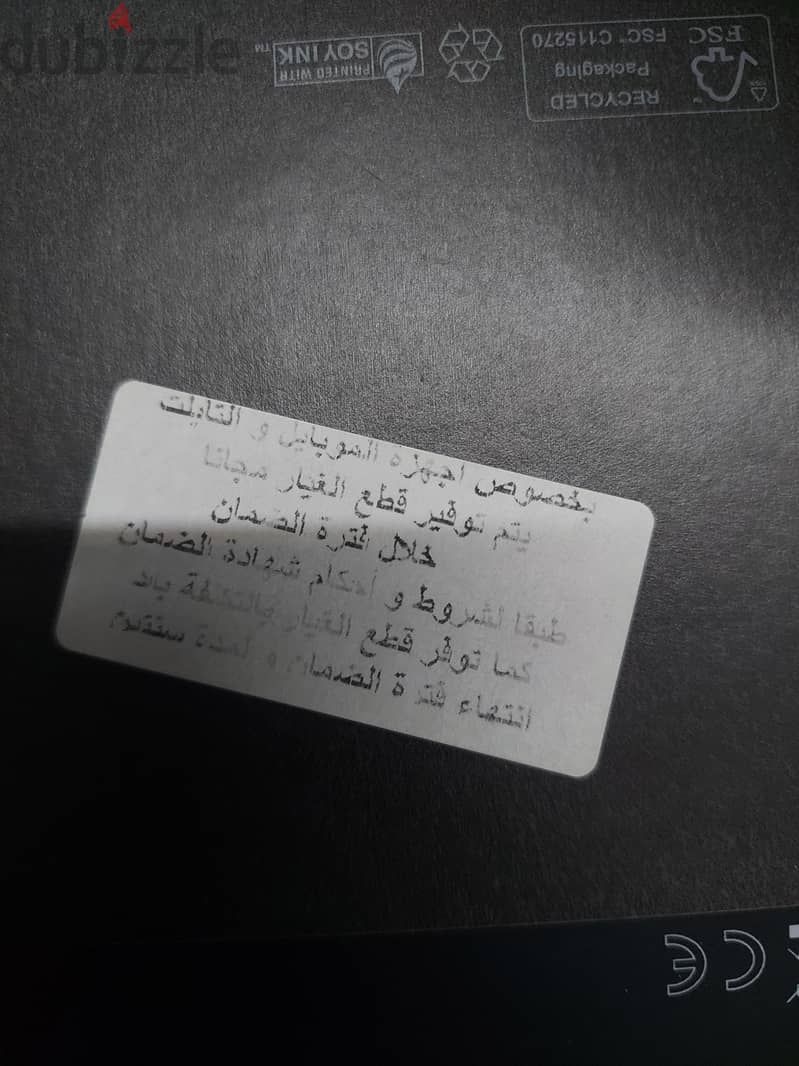 dubizzle
FSC
FSC™ C115270
Packaging
RECYCLED
PRINTED WITH
SOY INK
TM
بخصوص اجهزة الموبايل و التابلت
يتم توفير قطع الغيار مجانا
خلال فترة الضمان
طبقا لشروط و أحكام شهادة الضمان
كما توفر قطع الغيار بالتكلفة بعد
انتهاء فترة الضمان و لمدة سنتين
CE